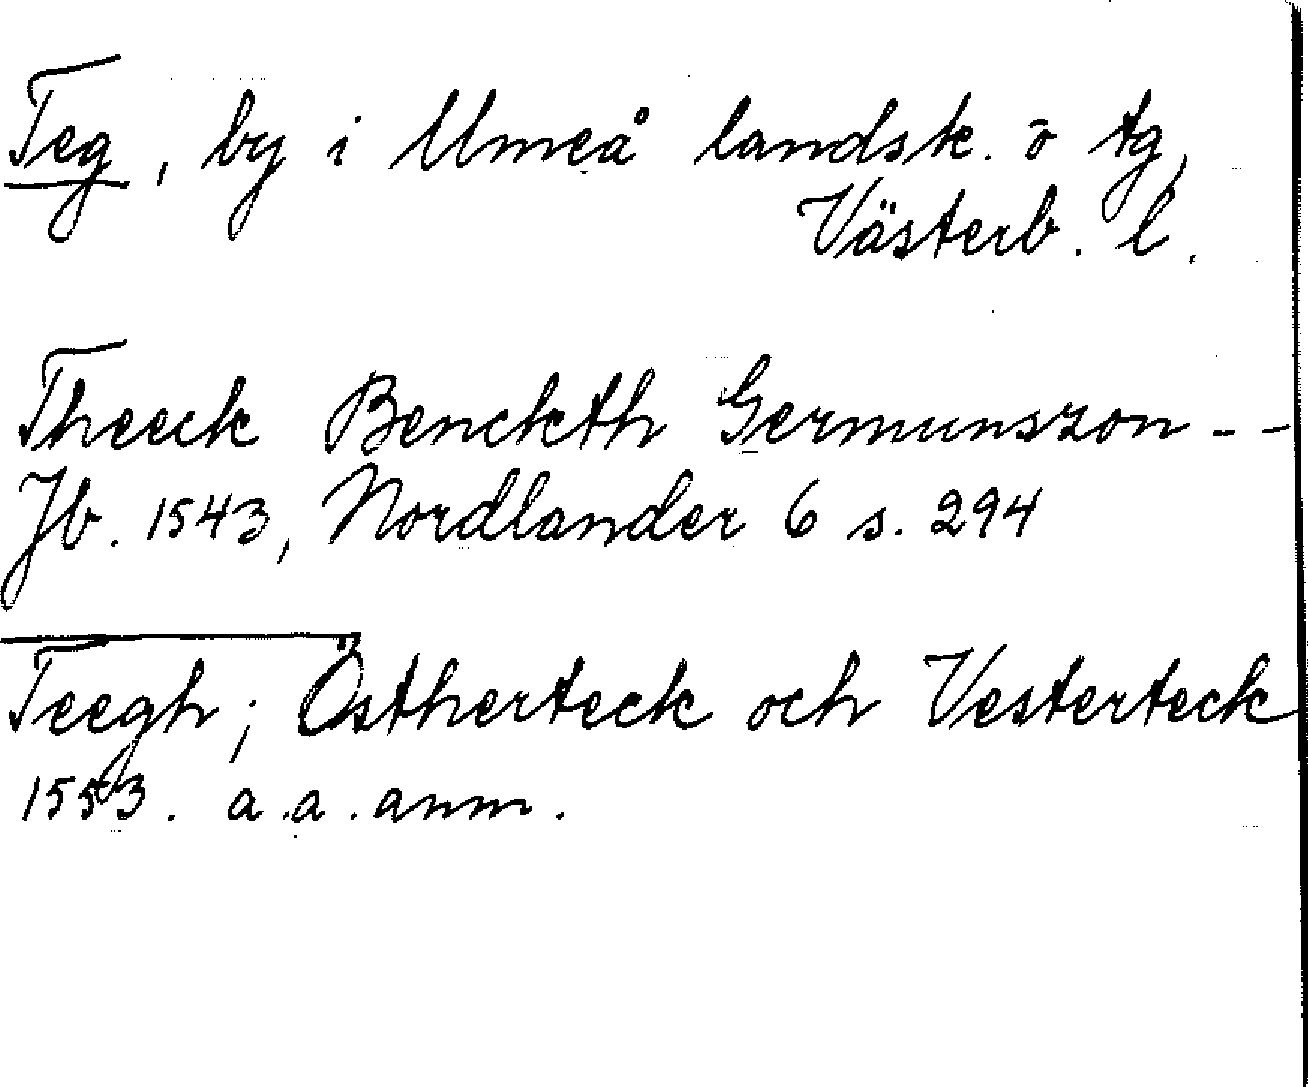 Teg, by i Umeå landsk. o tg,
Västerb. l.
Theeck Benckth Germunszon --
Jb. 1543, Nordlander 6 s. 294
Teegh; Östherteck och Vesterteck
1553. a.a. anm.